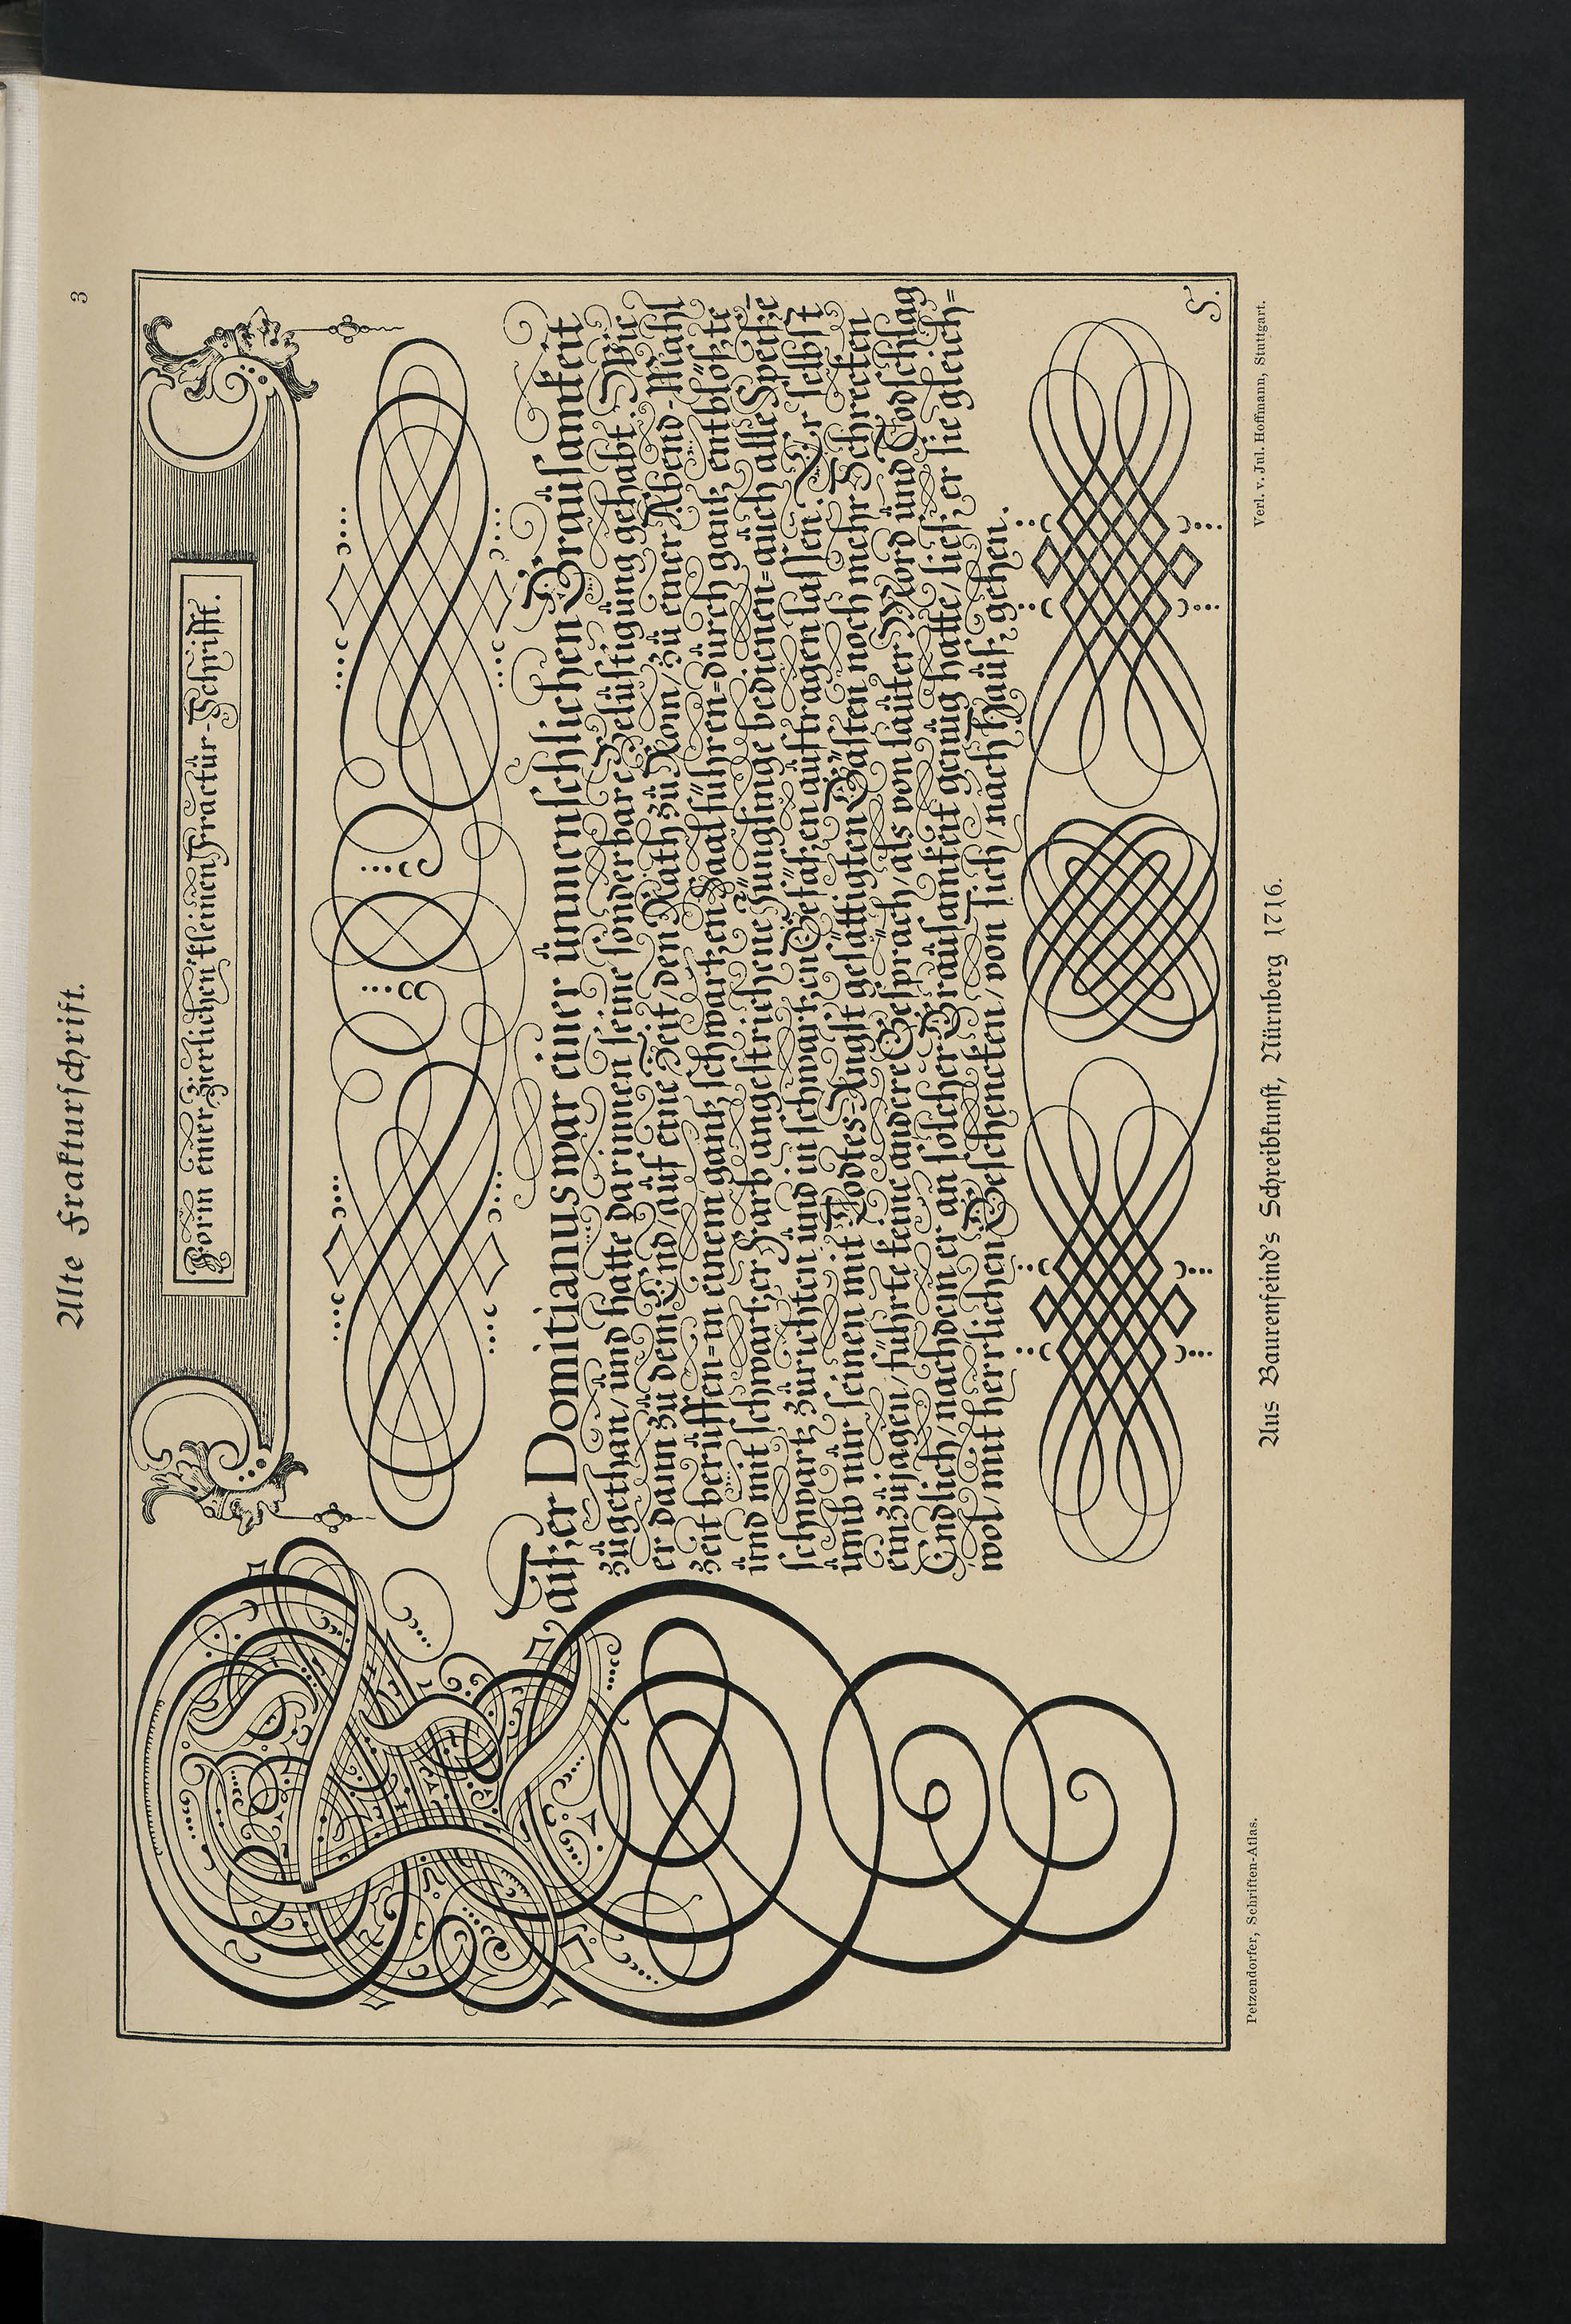 Alte Frakturschrift.
3
Form einer zierlichen kleinen Fractur-Schrifft.
Kaÿser Domitianus war einer unmenschlichen Gräusamkeit
zugethan/und hatte darinnen seine sonderbare Belustigung gehabt. Wie
er dann zu dem End/auf eine Zeit/den Rath zu Rom/zu einer Abend-Mahl
zeit beruffen=in einem gantz schwartzen Saal führen=durch gantz entblößte
und mit schwartzer Farb angestrichene Jünglinge bedienen=auch alle Speiße
schwartz zurichten und in schwartzen Gefäßen auftragen lassen. Er selbst
umb nur seinen mit Todtes-Angst gesättigten Gästen noch mehr Schrecken
einzujagen/führte keine andere Gespräch/als von lauter Mord und Todschlag
Endlich/nachdem er an solcher Gräusamkeit genug hatte/ließ er sie gleich=
wol/mit herrlichen Geschencken/von sich/nach Hauß gehen.
S.
Petzendorfer, Schriften-Atlas.
Aus Baurenfeind's Schreibkunst, Nürnberg 1716.
Verl. v. Jul. Hoffmann, Stuttgart.